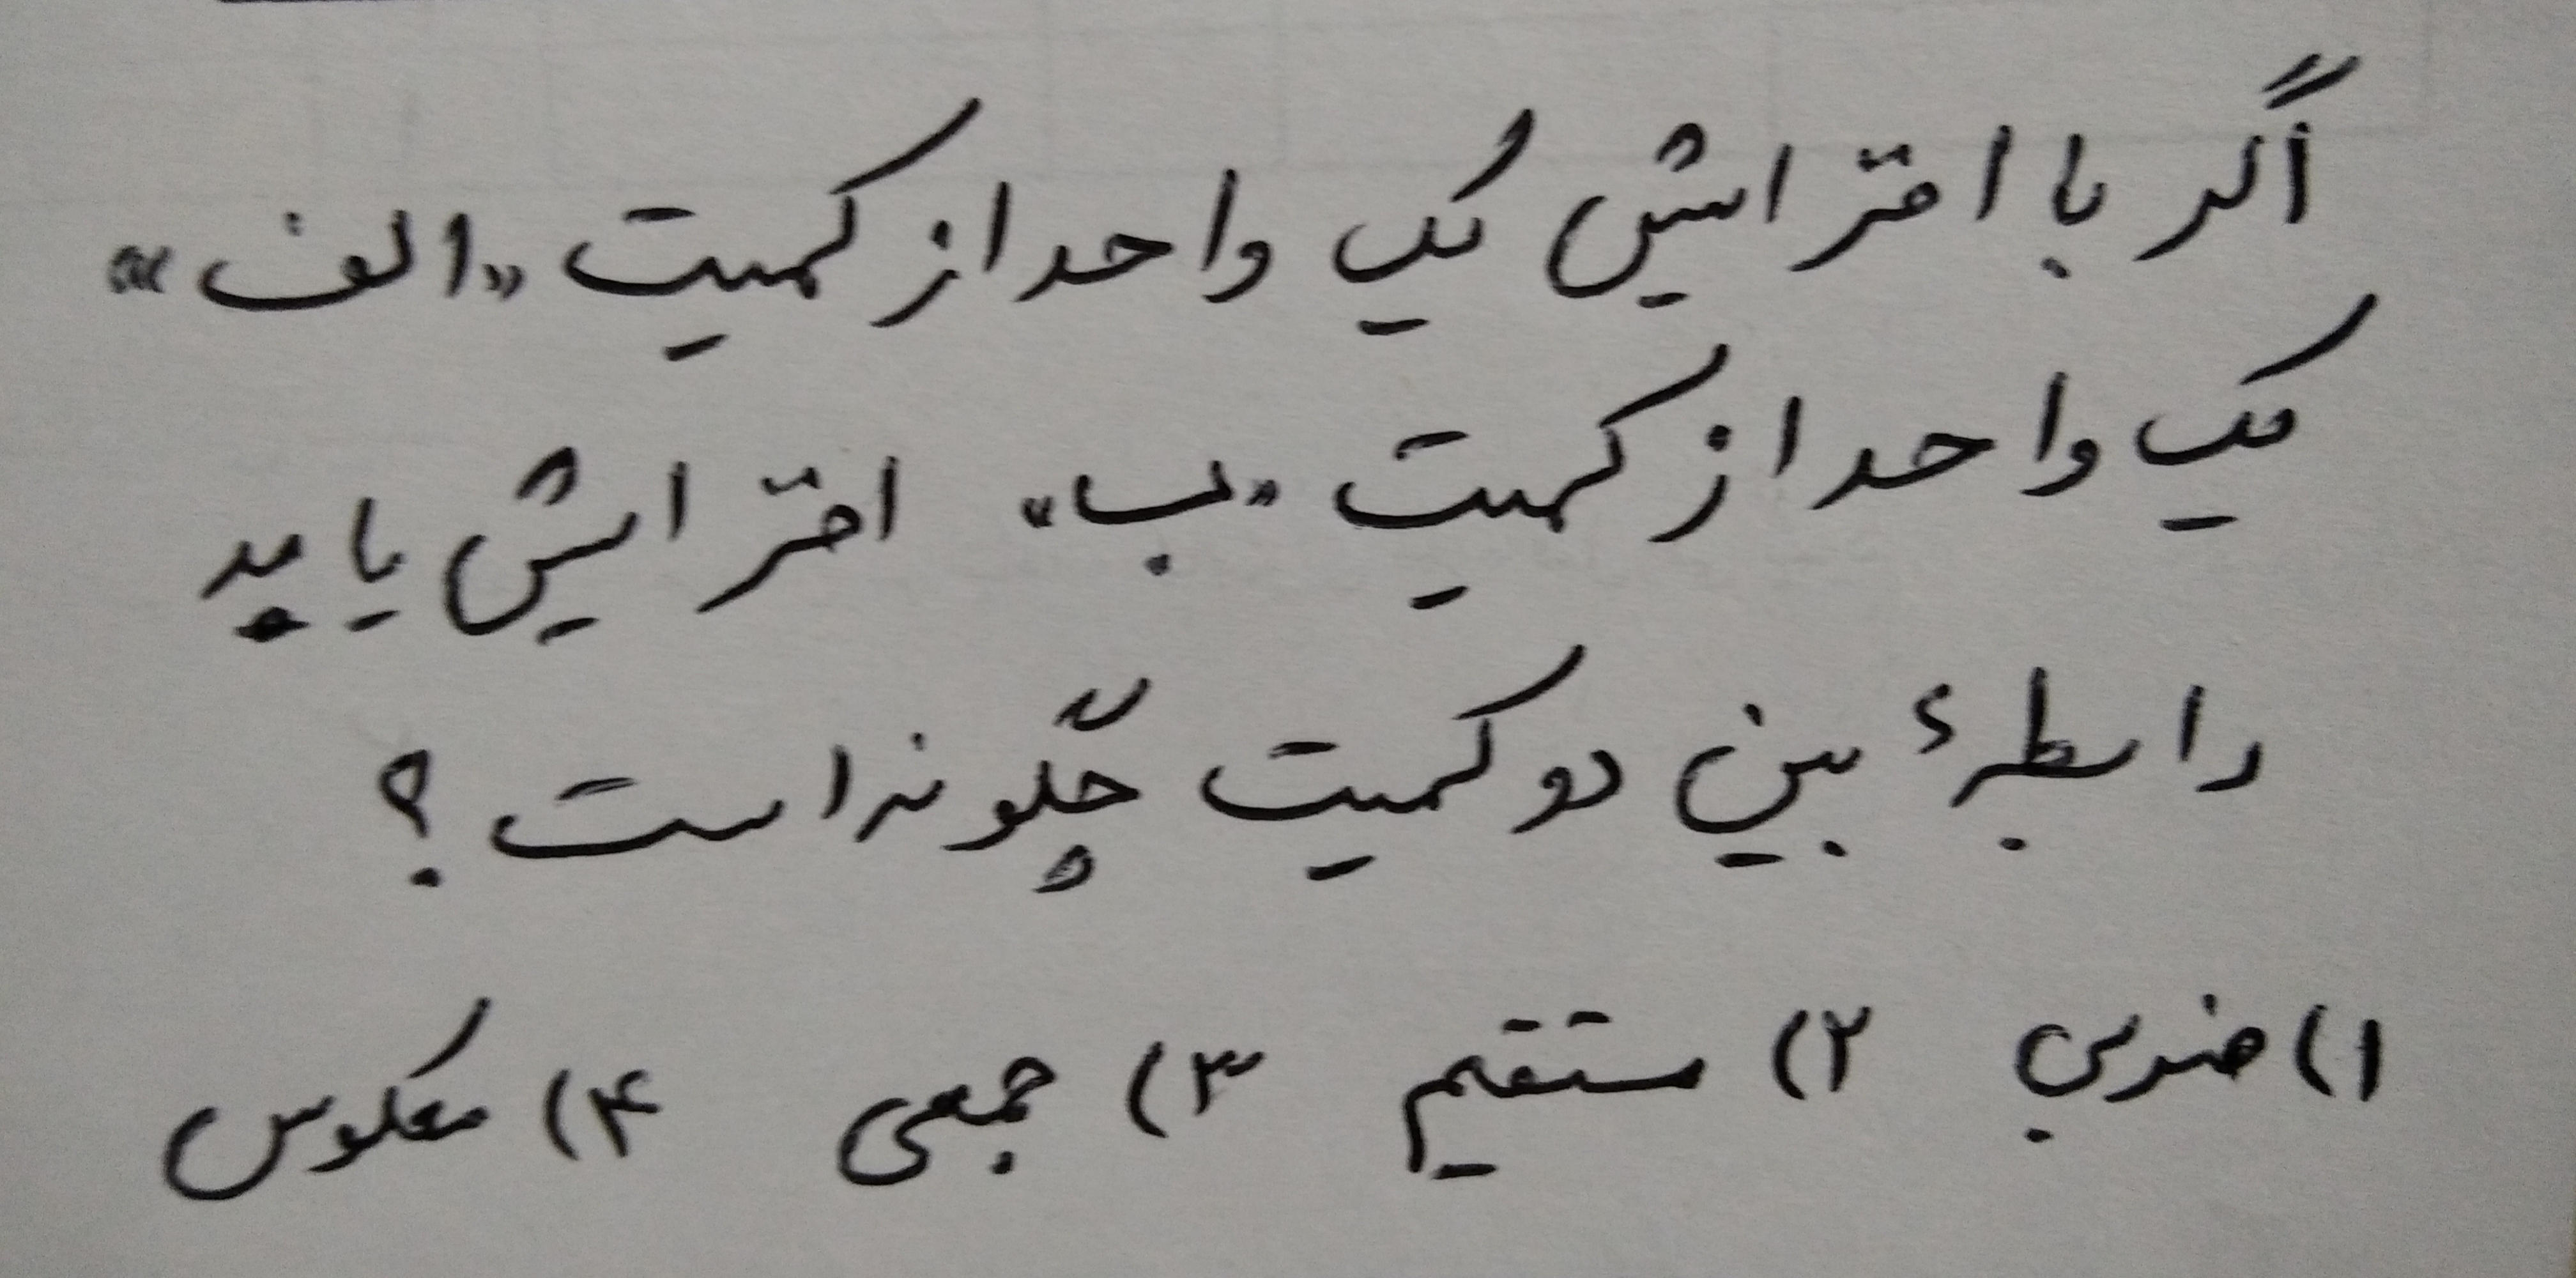 اگر با افزایش یک واحد از کمیت «الف»
یک واحد از کمیت «ب» افزایش یابد
رابطهٔ بین دو کمیت چگونه است؟
۱) ضربی ۲) مستقیم ۳) جمعی ۴) معکوس